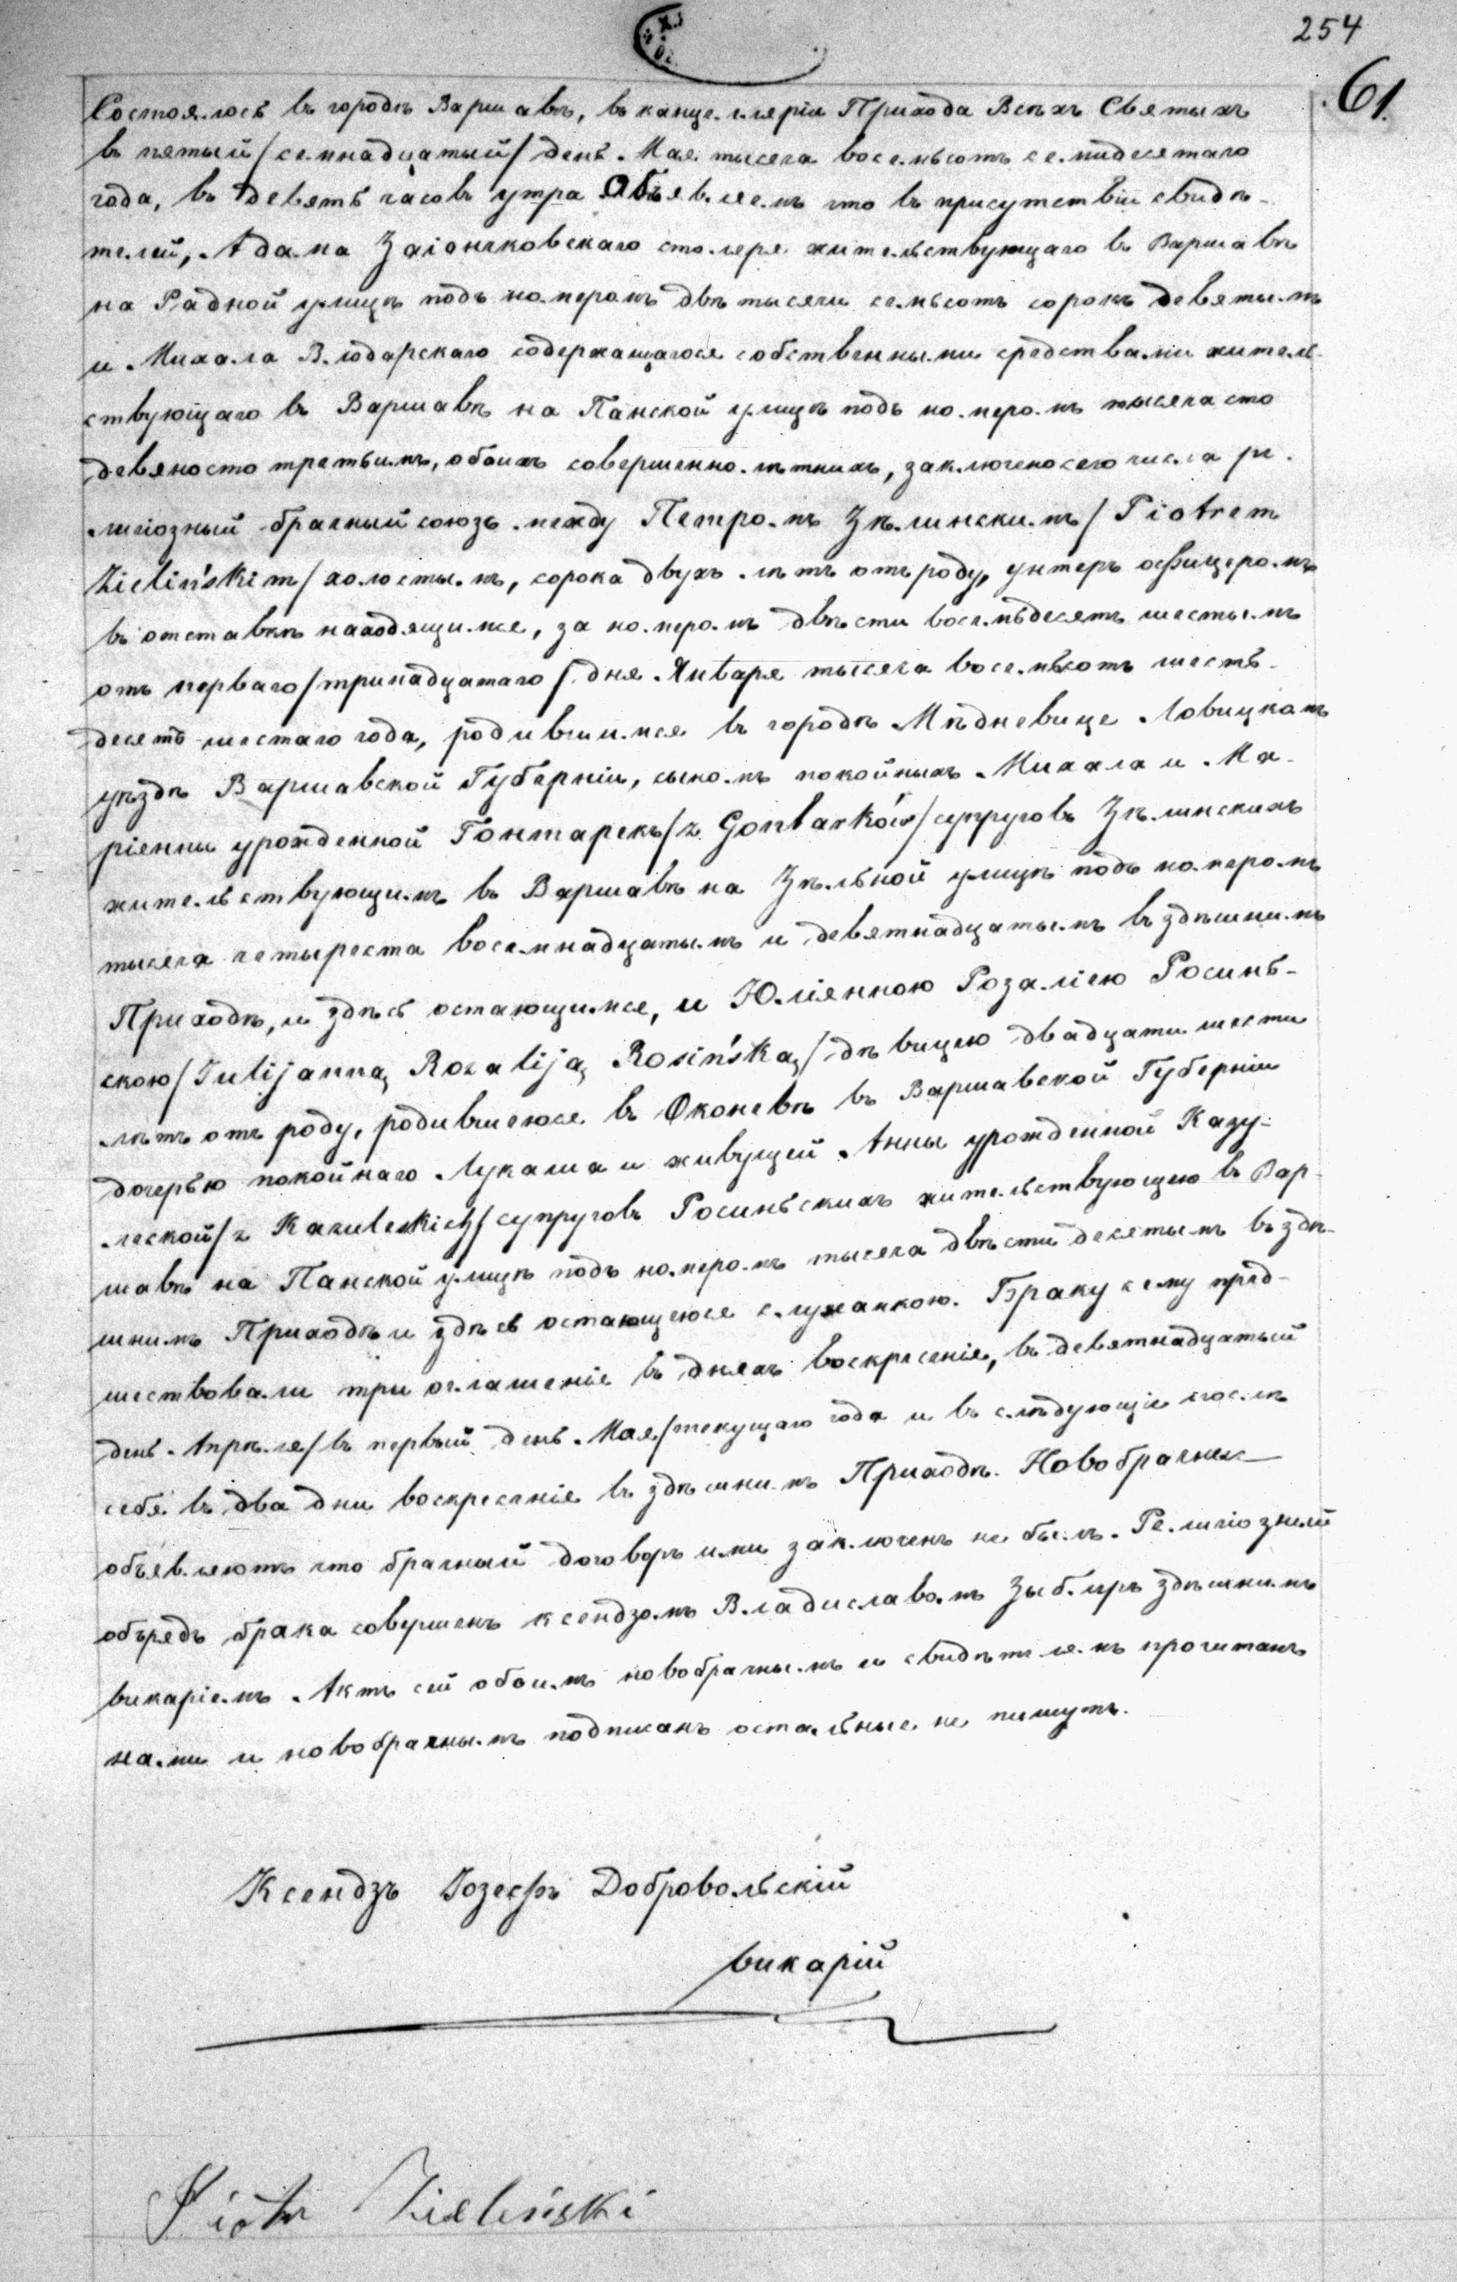 254
61.
Состоялось въ городѣ Варшавѣ, въ канцелляріи Прихода Всѣхъ Святыхъ
въ пятый /семнадцатый/ день Мая тысяча восемьсотъ семидесятаго
года, въ девять часовъ утра Объявляемъ что въ присутствіи свидѣ-
телей, Адама Заіончковскаго столяра жительствующаго въ Варшавѣ
на Радной улицѣ подъ номеромъ двѣ тысячи семьсотъ сорокъ девятымъ
и Михала Влодарскаго содержащагося собственными средствами житель-
ствующаго въ Варшавѣ на Панской улицѣ подъ номеромъ тысяча сто
девяносто третьимъ, обоихъ совершеннолѣтнихъ, заключено сего числа ре-
лигіозный брачный союзъ между Петромъ Зѣлинскимъ /Piotrem
Zielińskim/ холостымъ, сорока двухъ лѣтъ отъ роду, унтеръ офицеромъ
въ отставкѣ находящимся, за номеромъ двѣсти восемьдесятъ шестымъ
отъ перваго /тринадцатаго/ дня Января тысяча восемьсотъ шесть-
десятъ шестаго года, родившимся въ городѣ Мѣдневице Ловицкомъ
уѣздѣ Варшавской Губерніи, сыномъ покойныхъ Михала и Ма-
ріянны урожденной Гонтарекъ /z Gontarków/ супруговъ Зѣлинскихъ
жительствующимъ въ Варшавѣ на Зѣльной улицѣ подъ номеромъ
тысяча четыреста восемнадцатымъ и девятнадцатымъ въ здѣшнимъ
Приходѣ, и здѣсь остающимся, и Юліянною Розаліею Росинь-
скою /Julijanną Rozaliją Rosińską/ дѣвицею двадцати шести
лѣтъ отъ роду, родившеюся въ Оконевѣ въ Варшавской Губерніи
дочерью покойнаго Лукаша и живущей Анны урожденной Казу-
леской /z Kazuleskich/ супруговъ Росиньскихъ жительствующею въ Вар-
шавѣ на Панской улицѣ подъ номеромъ тысяча двѣсти десятымъ въ здѣ-
шнимъ Приходѣ и здѣсь остающеюся служанкою. Браку сему пред-
шествовали три оглашенія въ дняхъ воскресенія, въ девятнадцатый
день Апрѣля /въ первый день Мая/ текущаго года и въ слѣдующіе послѣ
себя въ два дни воскресенія въ здѣшнимъ Приходѣ. Новобрачные
объявляютъ что брачный договоръ ими заключенъ не былъ. Религіозный
обрядъ брака совершенъ ксендзомъ Владиславомъ Зыблеръ здѣшнимъ
викаріемъ. Актъ сей обоимъ новобрачнымъ и свидѣтелямъ прочитанъ
нами и новобрачнымъ подписанъ остальные не пишутъ.
Ксендзъ Іозефъ Добровольскій
викарій
Piotr Zieliński